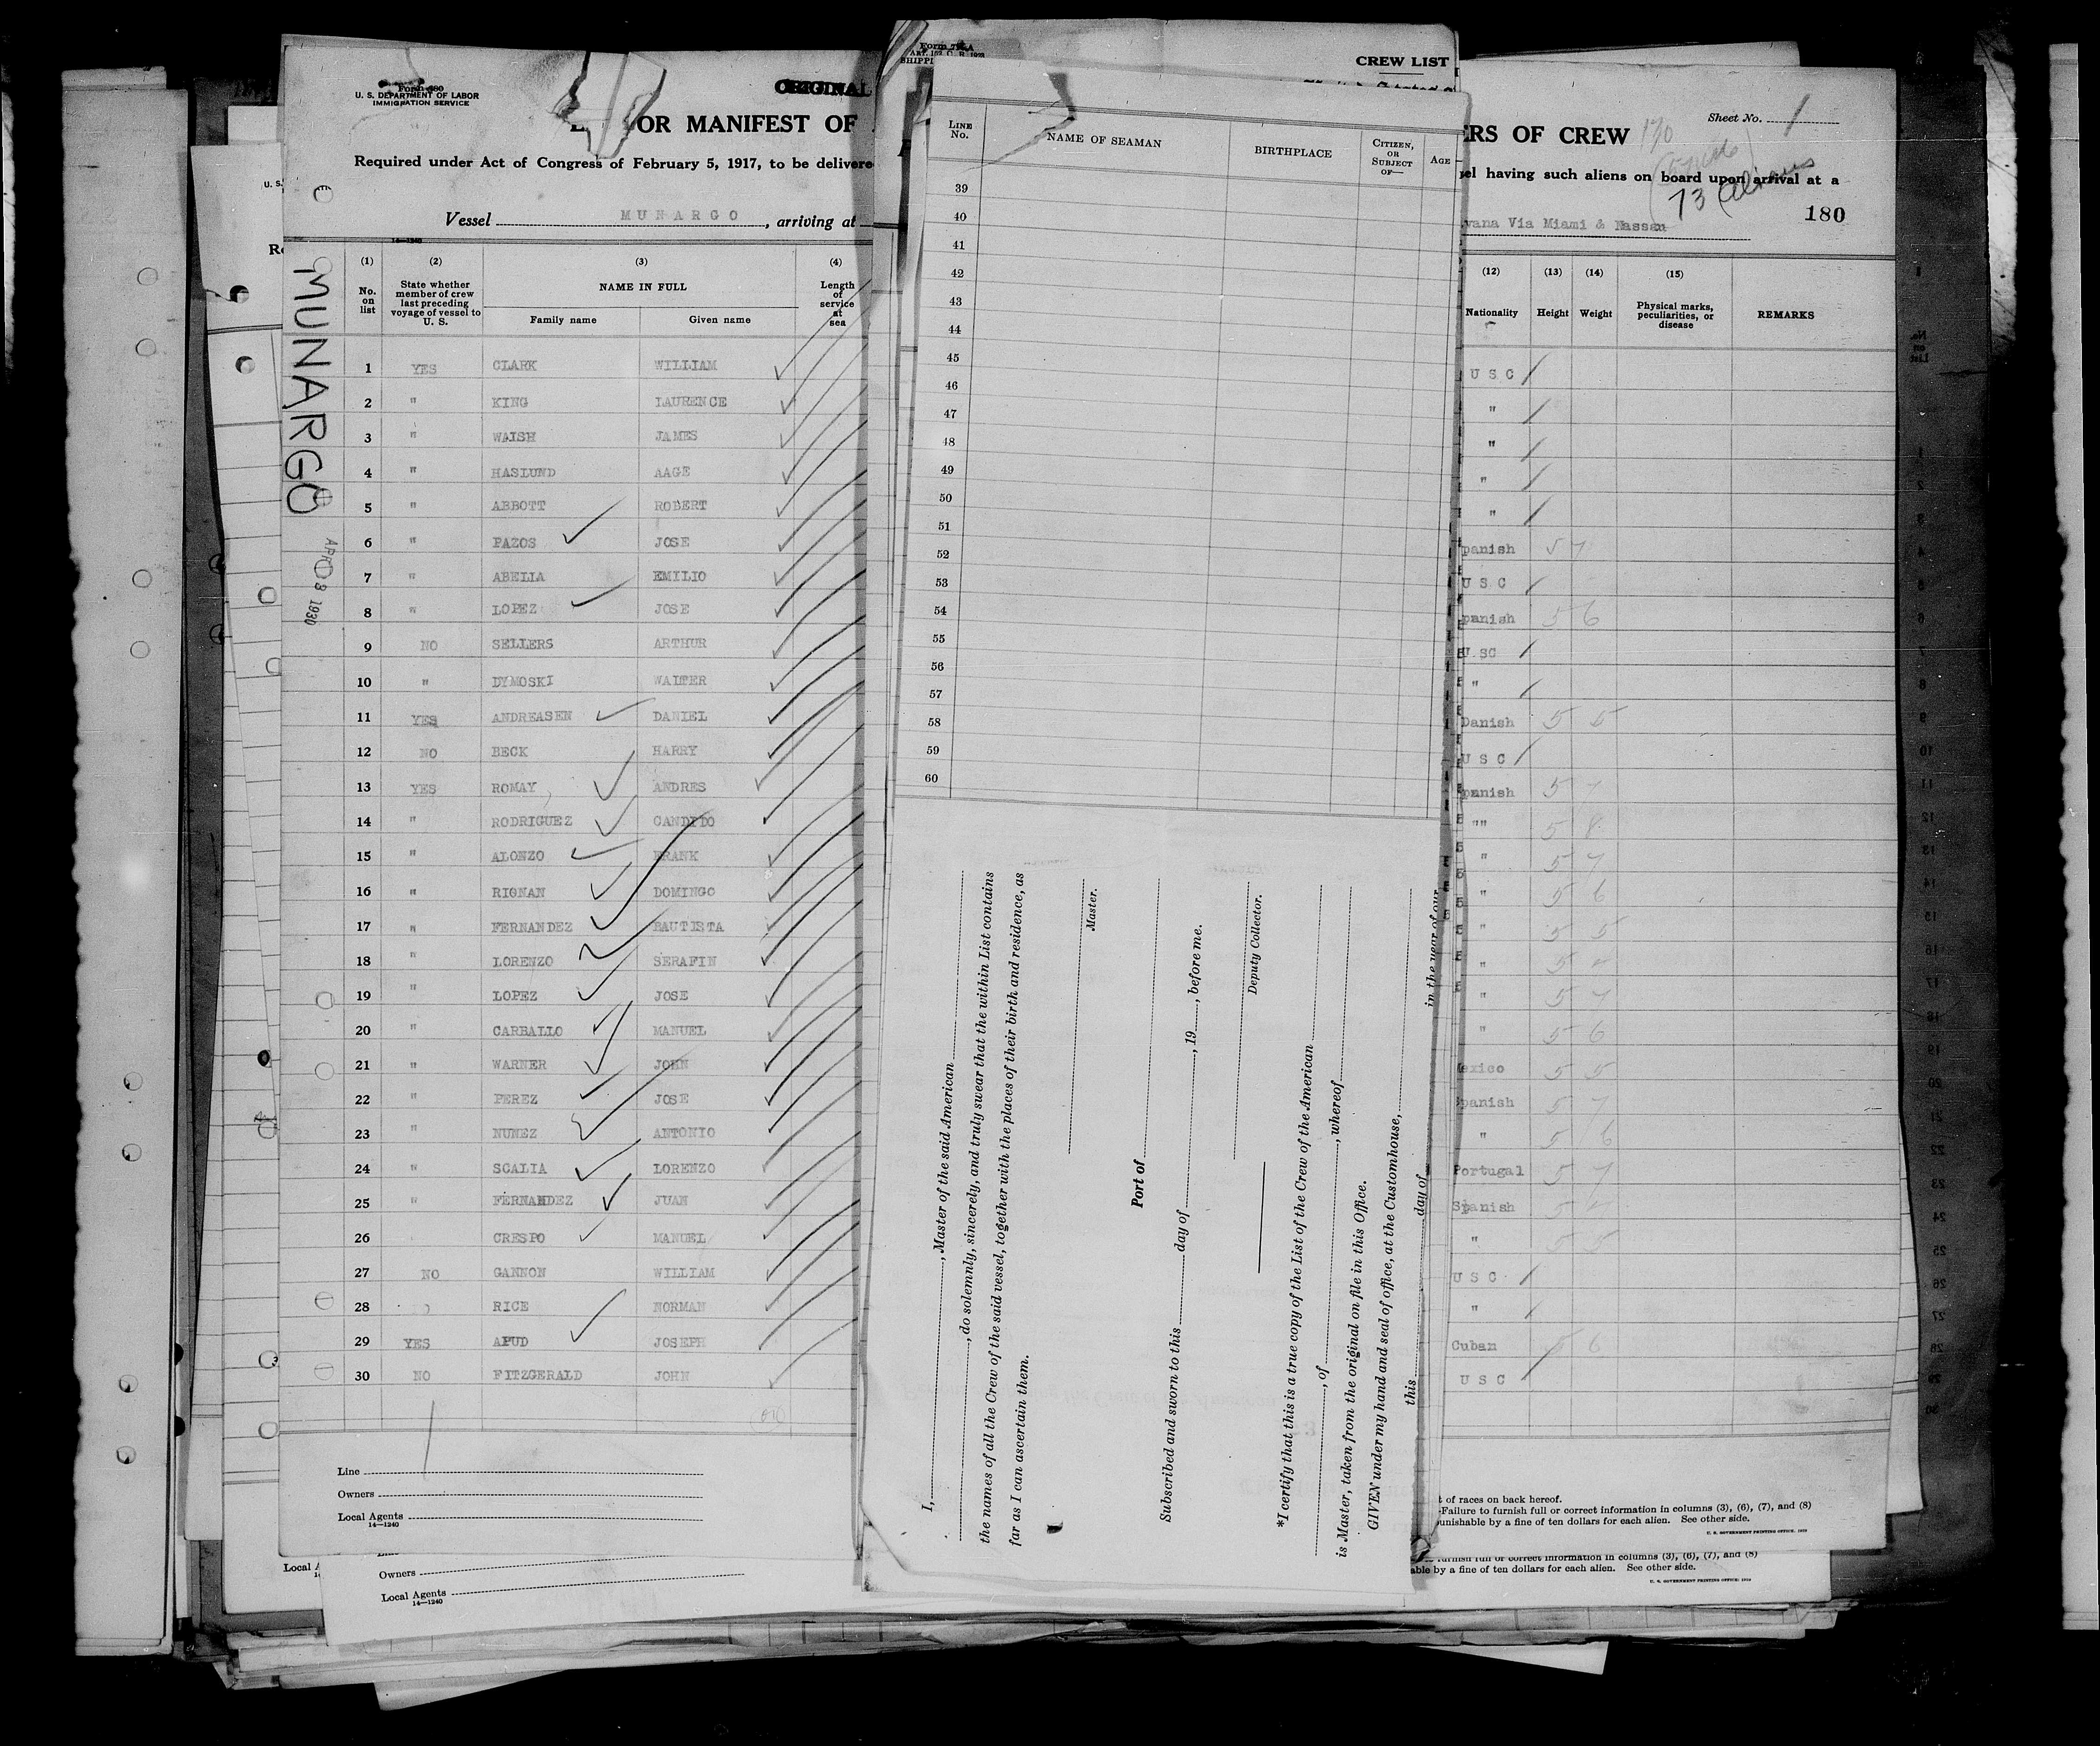 Form 680
U. S. DEPARTMENT OF LABOR
IMMIGRATION SERVICE
ORIGINAL
OR MANIFEST OF
Required under Act of Congress of February 5, 1917, to be delivere
Vessel MUNARGO, arriving at
14—1240
MUNARGO
APR 8 1930
(1) (2) (3) (4)
No. on list
State whether member of crew last preceding voyage of vessel to U. S.
NAME IN FULL
Family name Given name
Length of service at sea
1 YES CLARK WILLIAM
2 " KING LAURENCE
3 " WALSH JAMES
4 " HASLUND AAGE
5 " ABBOTT ROBERT
6 " PAZOS JOSE
7 " ABELLA EMILIO
8 " LOPEZ JOSE
9 NO SELLERS ARTHUR
10 " DYMOSKI WALTER
11 YES ANDREASEN DANIEL
12 NO BECK HARRY
13 YES ROMAY ANDRES
14 " RODRIGUEZ CANDIDO
15 " ALONZO FRANK
16 " RIGNAN DOMINGO
17 " FERNANDEZ BAUTISTA
18 " LORENZO SERAFIN
19 " LOPEZ JOSE
20 " CARBALLO MANUEL
21 " WARNER JOHN
22 " PEREZ JOSE
23 " NUNEZ ANTONIO
24 " SCALIA LORENZO
25 " FERNANDEZ JUAN
26 CRESPO MANUEL
27 NO GANNON WILLIAM
28 RICE NORMAN
29 YES APUD JOSEPH
30 NO FITZGERALD JOHN
Line
Owners
Local Agents
14—1240
Owners
Local Agents
14—1240
CREW LIST
LINE No.
NAME OF SEAMAN
BIRTHPLACE
CITIZEN, OR SUBJECT OF—
AGE
39
40
41
42
43
44
45
46
47
48
49
50
51
52
53
54
55
56
57
58
59
60
I, , Master of the said American
, do solemnly, sincerely, and truly swear that the within List contains
the names of all the Crew of the said vessel, together with the places of their birth and residence, as
far as I can ascertain them.
Master.
Port of
Subscribed and sworn to this day of , 19 , before me.
Deputy Collector.
*I certify that this is a true copy of the List of the Crew of the American
, of , whereof
is Master, taken from the original on file in this Office.
GIVEN under my hand and seal of office, at the Customhouse,
this day of in the year of our
Sheet No. 1
ERS OF CREW
130
73 Aliens
el having such aliens on board upon arrival at a
180
vana Via Miami & Nassau
(12) (13) (14) (15)
Nationality Height Weight
Physical marks, peculiarities, or disease
REMARKS
U S C
"
"
"
"
panish 5 7
U S C
panish 5 6
U SC
"
Danish 5 5
U S C
panish 5 7
"" 5 8
" 5 7
" 5 6
" 5 5
" 5
" 5 7
" 5 6
exico 5 5
panish 5 7
" 5 6
Portugal 5 7
Spanish 5
" 5 5
U S C
"
Cuban 5 6
U S C
t of races on back hereof.
-Failure to furnish full or correct information in columns (3), (6), (7), and (8)
unishable by a fine of ten dollars for each alien. See other side.
U. S. GOVERNMENT PRINTING OFFICE
furnish full or correct information in columns (3), (6), (7), and (8)
able by a fine of ten dollars for each alien. See other side.
U. S. GOVERNMENT PRINTING OFFICE